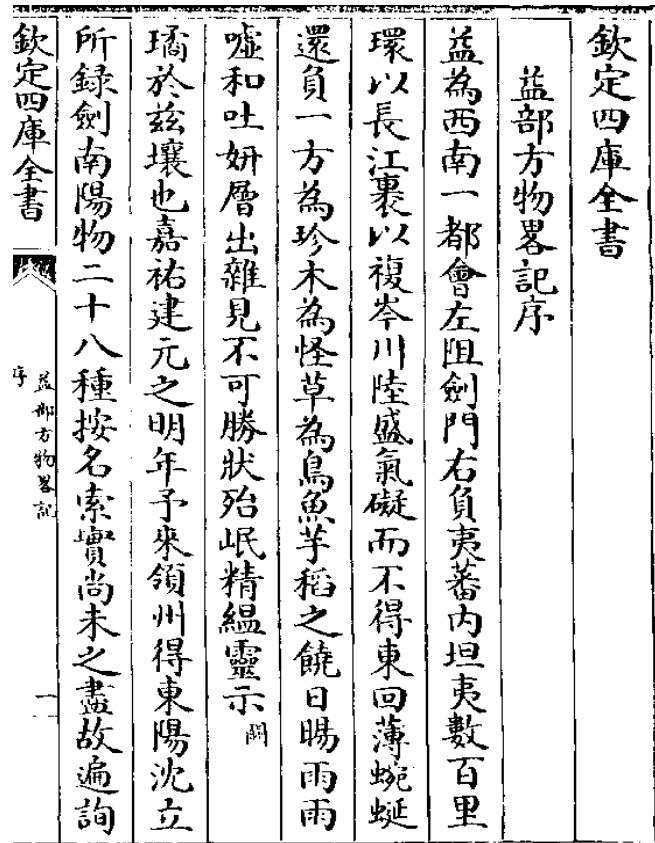 欽定四庫全書
益部方物畧記序
益為西南一都會左阻劍門右負夷蕃内坦夷數百里
環以長江裹以複岑川陸盛氣礙而不得東回薄蜿蜒
還負一方為珍木為怪草為鳥魚芋稻之饒日暘雨雨
噓和吐妍層出雜見不可勝狀殆岷精緼靈示闕
璚於兹壤也嘉祐建元之明年予來領州得東陽沈立
所録劍南陽物二十八種按名索實尚未之盡故遍詢
欽定四庫全書
益部方物畧記
序
一